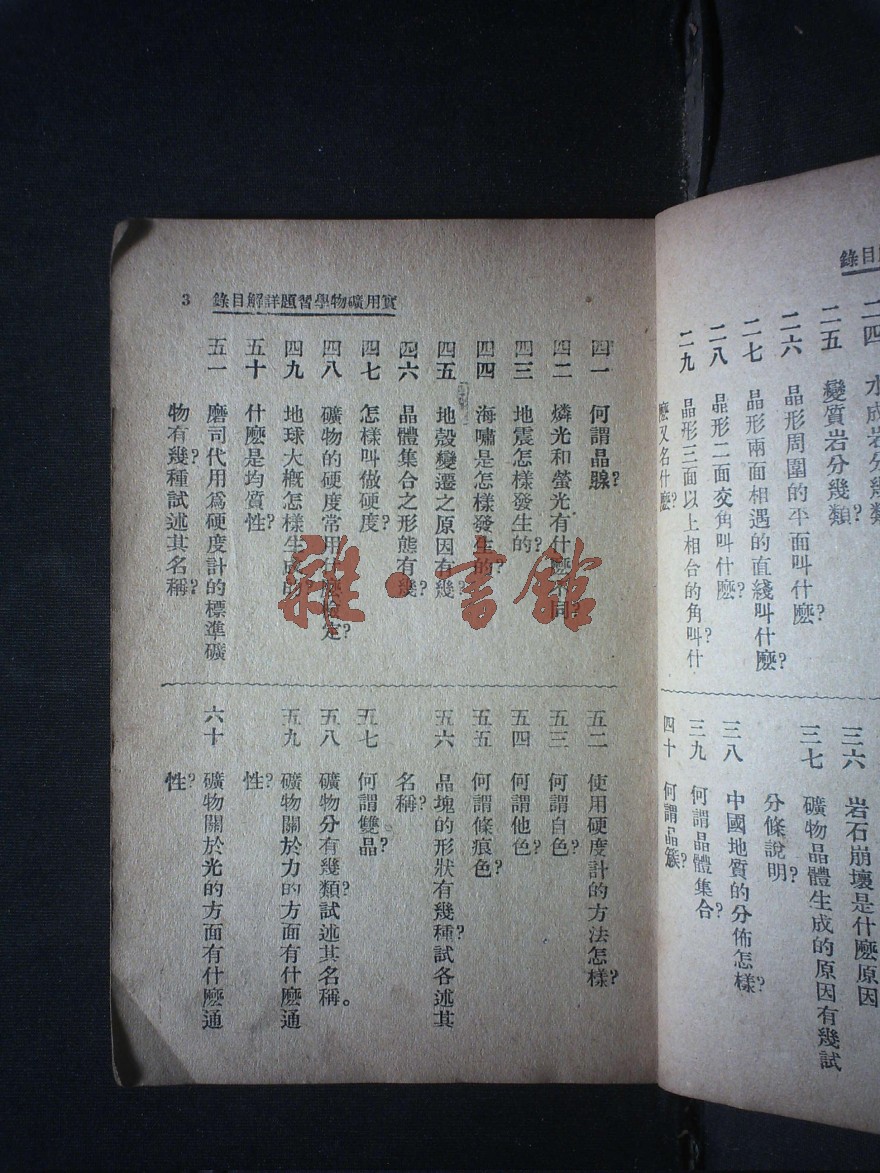 錄目
二四 水成岩分幾類
二五 變質岩分幾類?
二六 晶形周圍的平面叫什麽?
二七 晶形兩面相遇的直綫叫什麽?
二八 晶形二面交角叫什麽?
二九 晶形三面以上相合的角叫什
麽又名什麽?
三六 岩石崩壞是什麽原因
三七 礦物晶體生成的原因有幾試
分條說明?
三八 中國地質的分佈怎樣?
三九 何謂晶體集合?
四十 何謂晶簇?
實用礦物學習題詳解目錄 3
四一 何謂晶腺?
四二 燐光和螢光有什麽不同?
四三 地震怎樣發生的?
四四 海嘯是怎樣發生的?
四五 地殼變遷之原因有幾?
四六 晶體集合之形態有幾?
四七 怎樣叫做硬度?
四八 礦物的硬度常用什麽檢定?
四九 地球大概怎樣生成的?
五十 什麽是均質性?
五一 磨司代用爲硬度計的標準礦
物有幾?種試述其名稱?
五二 使用硬度計的方法怎樣?
五三 何謂自色?
五四 何謂他色?
五五 何謂條痕色?
五六 晶塊的形狀有幾種?試各述其
名稱?
五七 何謂雙晶?
五八 礦物分有幾類?試述其名稱。
五九 礦物關於力的方面有什麽通
性?
六十 礦物關於光的方面有什麽通
性?
雜·書館